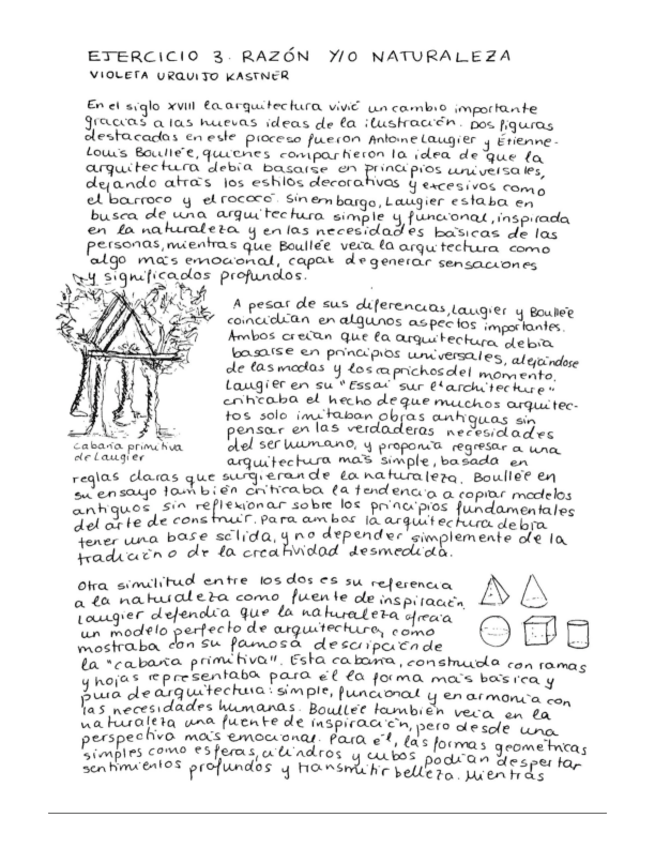 EJERCICIO 3. RAZÓN Y/O NATURALEZA
VIOLETA URQUIJO KASTNER
En el siglo XVIII la arquitectura vivió un cambio importante
gracias a las nuevas ideas de la ilustración. Dos figuras
destacadas en este proceso fueron Antoine Laugier y Étienne-
Louis Boullée, quienes compartieron la idea de que la
arquitectura debía basarse en principios universales,
dejando atrás los estilos decorativos y excesivos como
el barroco y el rococó. Sin embargo, Laugier estaba en
busca de una arquitectura simple y funcional, inspirada
en la naturaleza y en las necesidades básicas de las
personas, mientras que Boullée veía la arquitectura como
algo más emocional, capaz de generar sensaciones
y significados profundos.
A pesar de sus diferencias, Laugier y Boullée
coincidían en algunos aspectos importantes.
Ambos creían que la arquitectura debía
basarse en principios universales, alejándose
de las modas y los caprichos del momento.
Laugier en su "Essai sur l'architecture"
criticaba el hecho de que muchos arquitec-
tos solo imitaban obras antiguas sin
pensar en las verdaderas necesidades
del ser humano, y proponía regresar a una
arquitectura más simple, basada en
cabaña primitiva
de Laugier
reglas claras que surgieran de la naturaleza. Boullée en
su ensayo también criticaba la tendencia a copiar modelos
antiguos sin reflexionar sobre los principios fundamentales
del arte de construir. Para ambos la arquitectura debía
tener una base sólida, y no depender simplemente de la
tradición o de la creatividad desmedida.
Otra similitud entre los dos es su referencia
a la naturaleza como fuente de inspiración.
Laugier defendía que la naturaleza ofrecía
un modelo perfecto de arquitectura, como
mostraba con su famosa descripción de
la "cabaña primitiva". Esta cabaña, construida con ramas
y hojas representaba para él la forma más básica y
pura de arquitectura: simple, funcional y en armonía con
las necesidades humanas. Boullée también veía en la
naturaleza una fuente de inspiración, pero desde una
perspectiva más emocional. Para él, las formas geométricas
simples como esferas, cilindros y cubos podían despertar
sentimientos profundos y transmitir belleza. Mientras